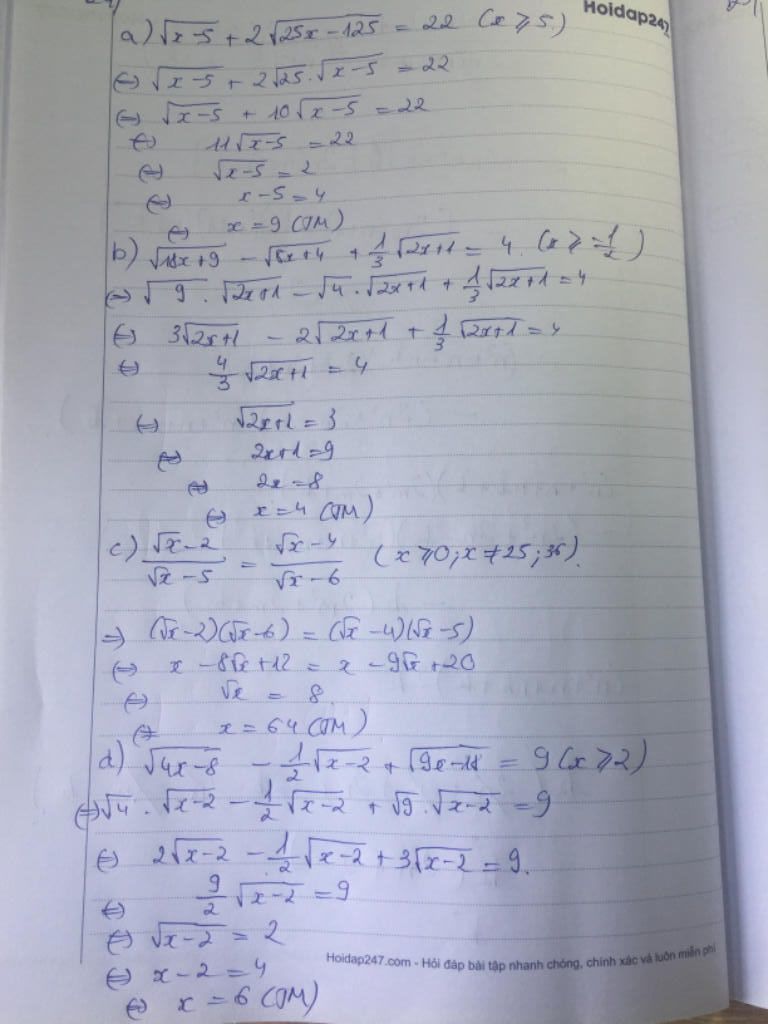 Hoidap247
a) √(x-5) + 2√(25x-125) = 22 (x ⩾ 5)
⇔ √(x-5) + 2√25.√(x-5) = 22
⇔ √(x-5) + 10√(x-5) = 22
⇔ 11√(x-5) = 22
⇔ √(x-5) = 2
⇔ x-5 = 4
⇔ x = 9 (TM)
b) √(18x+9) - √(8x+4) + 1/3 √(2x+1) = 4. (x ⩾ -1/2)
⇔ √9 . √(2x+1) - √4 . √(2x+1) + 1/3 √(2x+1) = 4
⇔ 3√(2x+1) - 2√(2x+1) + 1/3 √(2x+1) = 4
⇔ 4/3 √(2x+1) = 4
⇔ √(2x+1) = 3
⇔ 2x+1 = 9
⇔ 2x = 8
⇔ x = 4 (TM)
c) (√x-2)/(√x-5) = (√x-4)/(√x-6) (x ⩾ 0; x ≠ 25; 36).
⇒ (√x-2)(√x-6) = (√x-4)(√x-5)
⇔ x - 8√x + 12 = x - 9√x + 20
⇔ √x = 8
⇔ x = 64 (TM)
d) √(4x-8) - 1/2 √(x-2) + √(9x-18) = 9 (x ⩾ 2)
⇔ √4 . √(x-2) - 1/2 √(x-2) + √9 . √(x-2) = 9
⇔ 2√(x-2) - 1/2 √(x-2) + 3√(x-2) = 9.
⇔ 9/2 √(x-2) = 9
⇔ √(x-2) = 2
⇔ x-2 = 4
⇔ x = 6 (TM)
Hoidap247.com - Hỏi đáp bài tập nhanh chóng, chính xác và luôn miễn phí